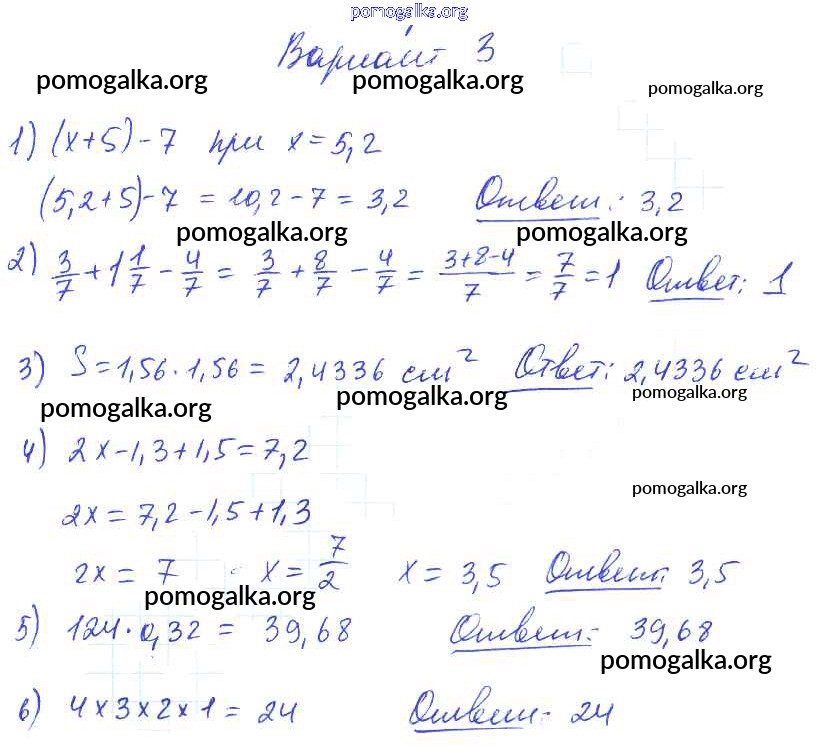 pomogalka.org
Вариант 3
pomogalka.org pomogalka.org pomogalka.org
1) (x+5)-7 при x=5,2
(5,2+5)-7 = 10,2-7 = 3,2 Ответ: 3,2
pomogalka.org pomogalka.org
2) 3/7 + 1 1/7 - 4/7 = 3/7 + 8/7 - 4/7 = (3+8-4)/7 = 7/7 = 1 Ответ: 1
3) S = 1,56 · 1,56 = 2,4336 см² Ответ: 2,4336 см²
pomogalka.org pomogalka.org pomogalka.org
4) 2x-1,3+1,5=7,2
pomogalka.org
2x = 7,2-1,5+1,3
2x = 7 x = 7/2 x = 3,5 Ответ: 3,5
pomogalka.org
5) 124 · 0,32 = 39,68 Ответ: 39,68
pomogalka.org
6) 4 × 3 × 2 × 1 = 24 Ответ: 24